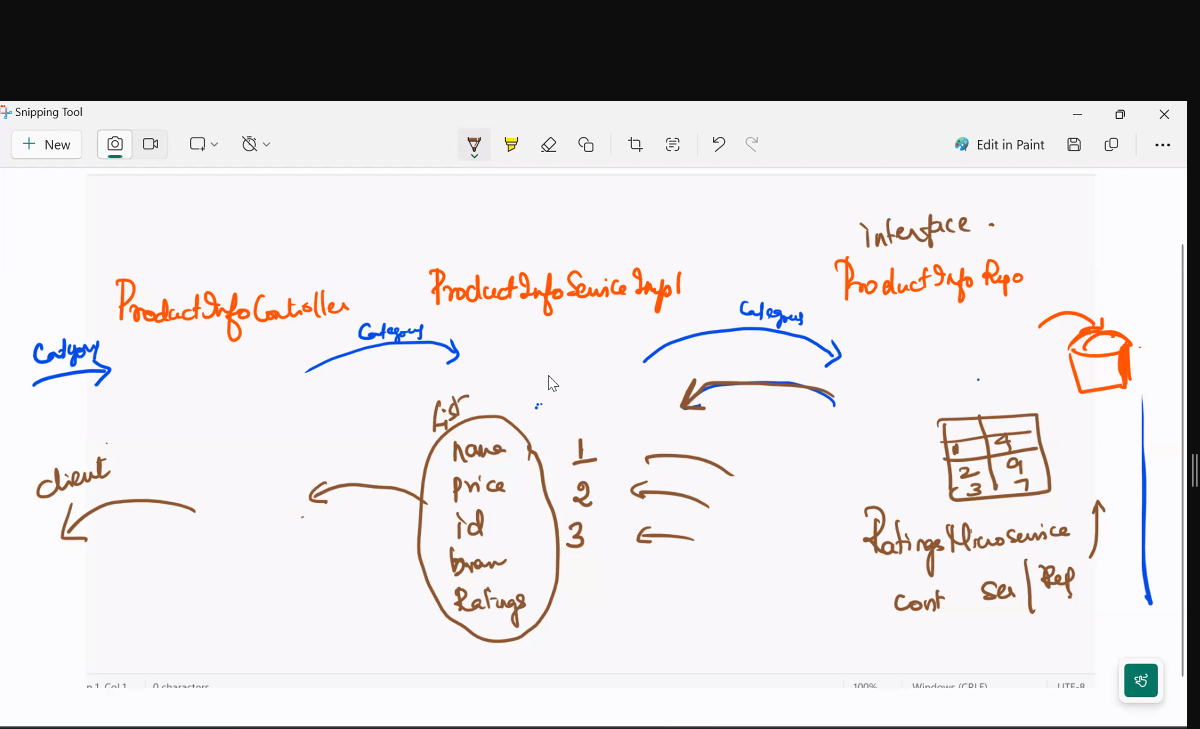 Snipping Tool
New
Edit in Paint
interface .
ProductInfoController
ProductInfoServiceImpl
ProductInfoRepo
Category
Category
Category
list
name
price
id
bran
Ratings
1
2
3
client
1 4
2 9
3 7
RatingsMicroservice
cont ser / Rep
n 1, Col 1
0 characters
100%
Windows (CRLF)
UTF-8